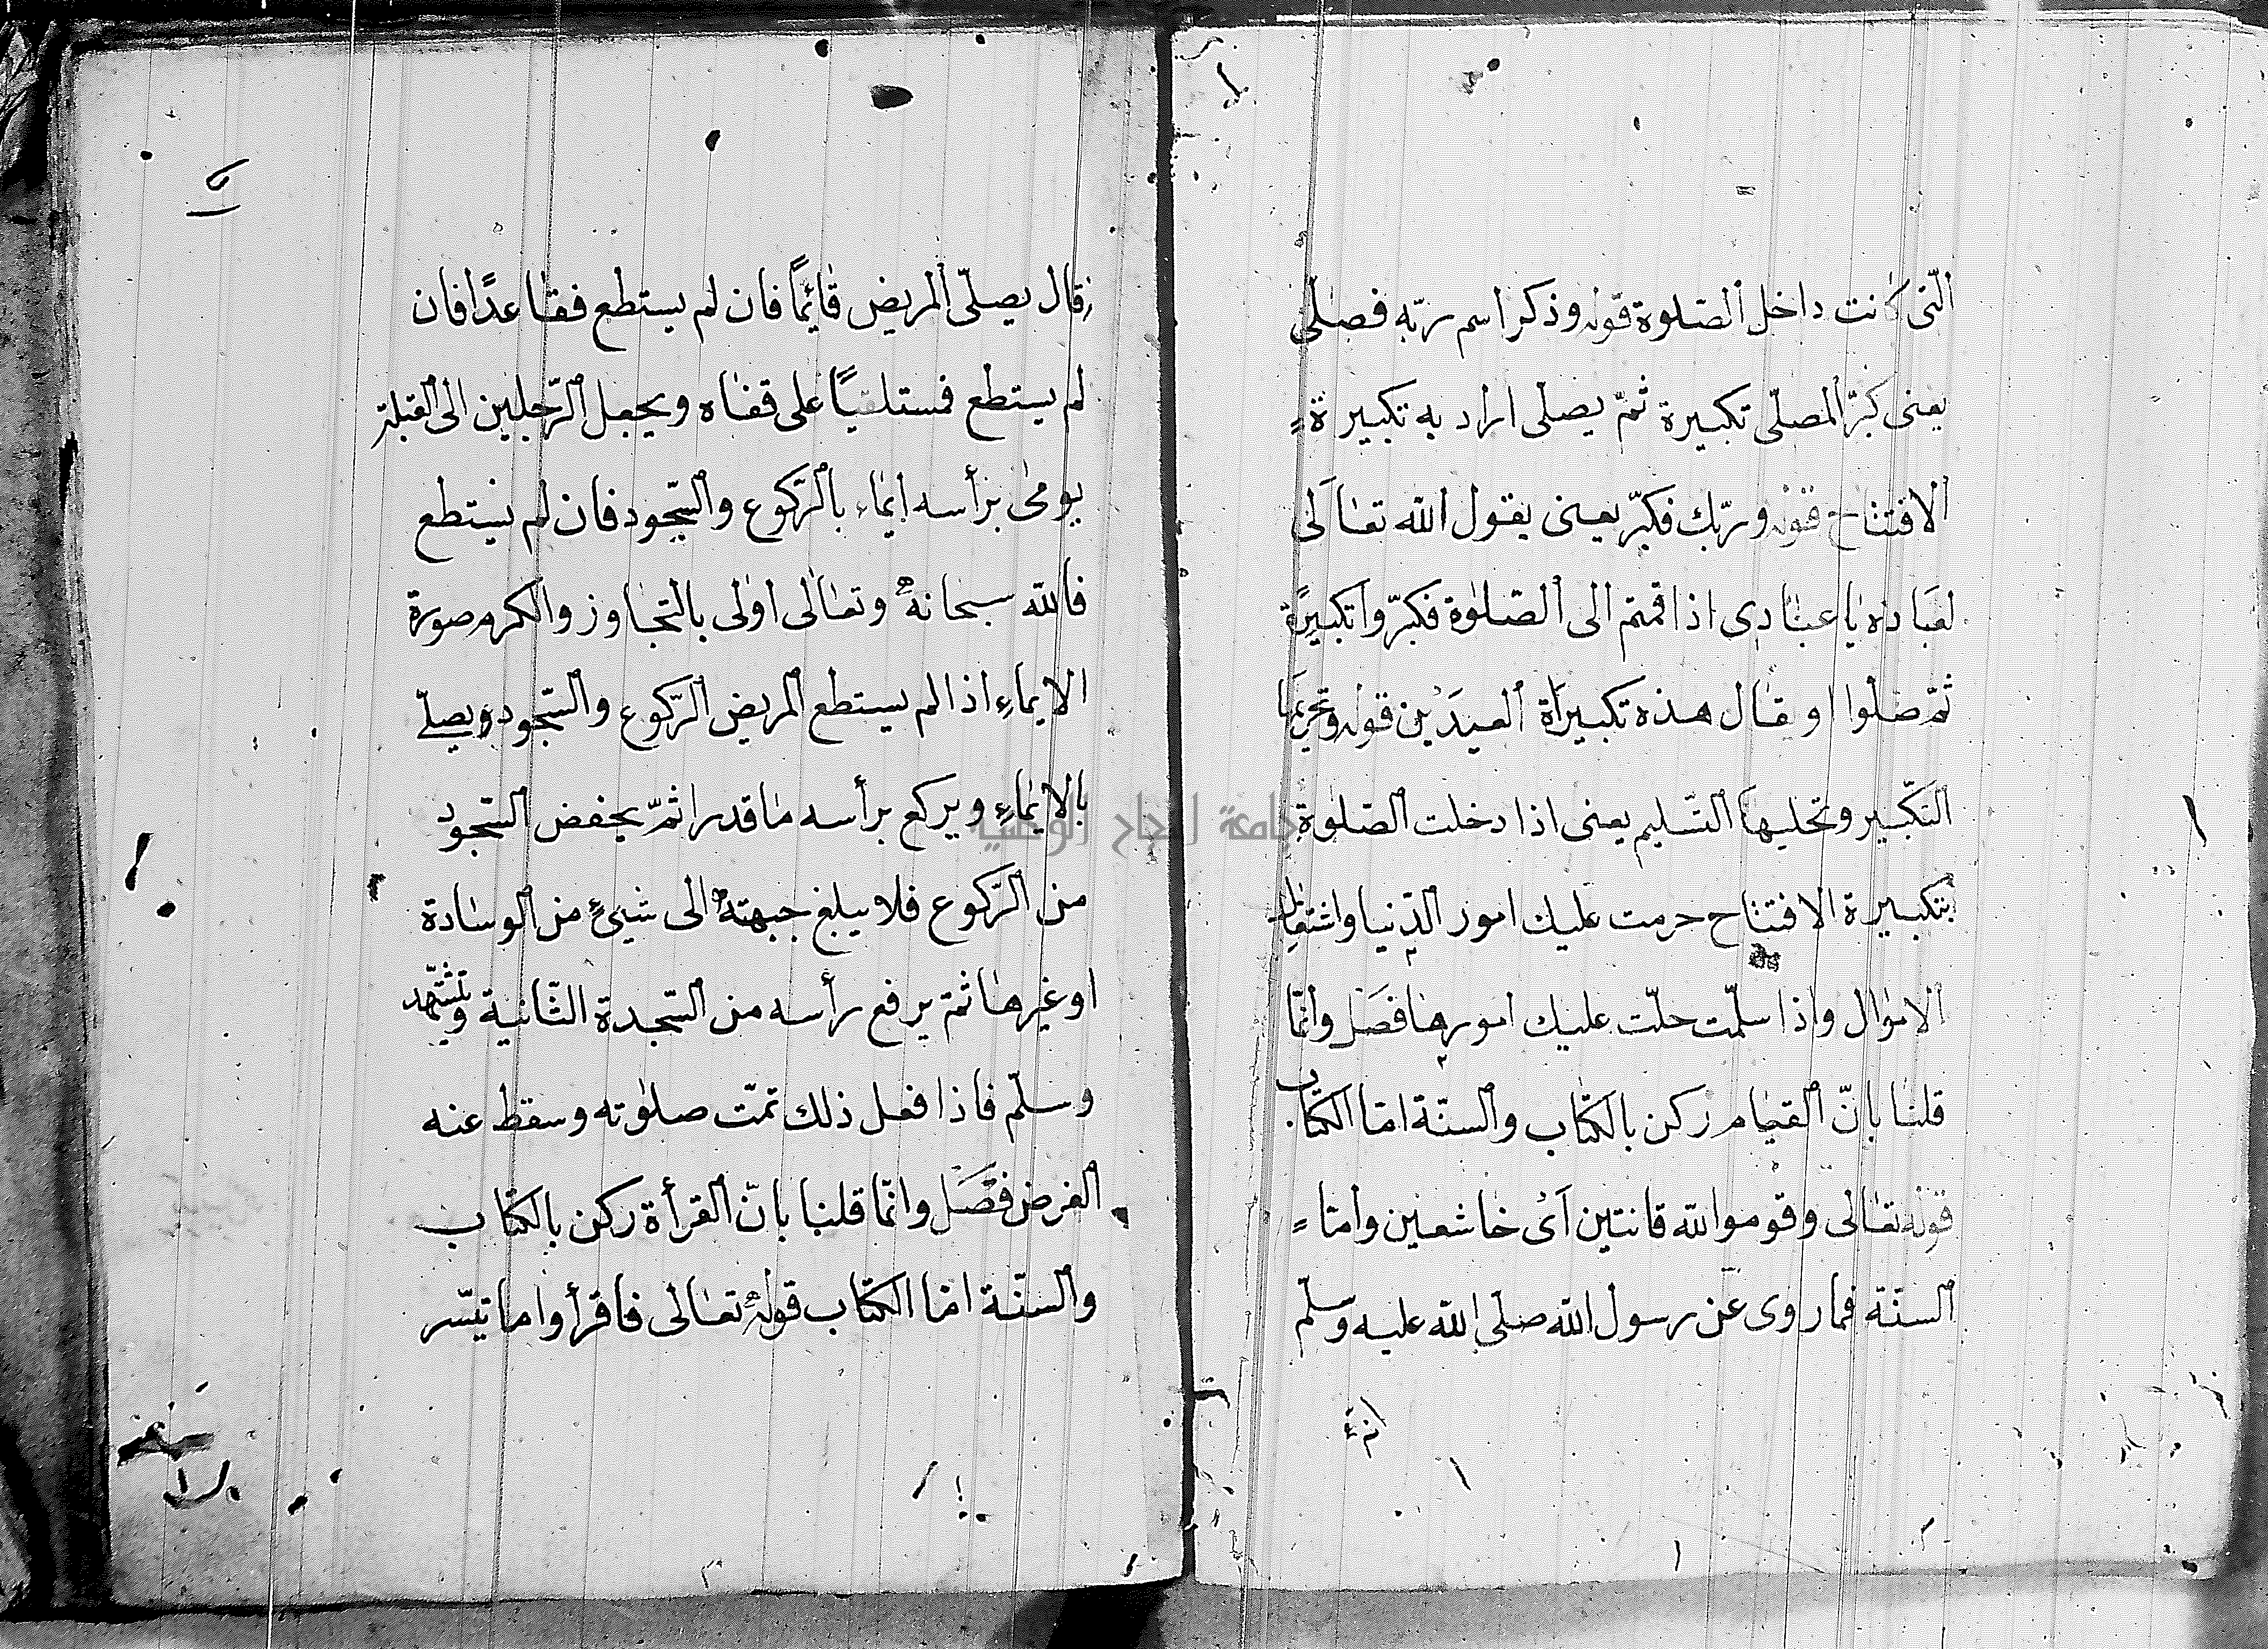 الّتى كانت داخل الصّلوة قوله وذكر اسم ربّه فصلّى
يعنى كبّر المصلّى تكبيرة ثمّ يصلى اراد به تكبيرة
الافتتاح قوله وربّك فكبّر يعنى يقول الله تعالى
لعباده يا عبادى اذا قمتم الى الصّلوة فكبّروا تكبيرة
ثمّ صلوا او يقال هذه تكبيراة العيدين قوله وتحريمها
التكبير وتحليها التّسليم يعنى اذا دخلت الصّلوة
بتكبيرة الافتتاح حرمت عليك امور الدّنيا واشتغال
الاموال واذا سلّمت حلّت عليك امورها فصل وانّما
قلنا بانّ القيام ركن بالكتاب والسنّة امّا الكتاب
قوله تعالى وقوموا لله قانتين اى خاشعين وامّا
السنّة فما روى عن رسول الله صلّى الله عليه وسلّم
قال يصلّى المريض قائمًا فان لم يستطع فقاعدًا فان
لم يستطع فمستلقيًا على قفاه ويجعل الرّجلين الى القبلة
يومئ برأسه ايماء بالرّكوع والسّجود فان لم يستطع
فالله سبحانه وتعالى اولى بالتجاوز والكرم صورة
الايماء اذا لم يستطع المريض الرّكوع والسّجود ويصلّى
بالايماء ويركع برأسه ما قدر ثمّ يخفض السّجود
من الرّكوع فلا يبلغ جبهته الى شيئ من الوسادة
او غيرها ثم يرفع رأسه من السّجدة الثّانية وتشهّد
وسلّم فاذا فعل ذلك تمّت صلوته وسقط عنه
الفرض فصل وانّما قلنا بانّ القرأة ركن بالكتاب
والسنّة امّا الكتاب قوله تعالى فاقرأوا ما تيسّر
جامعة النجاح الوطنية